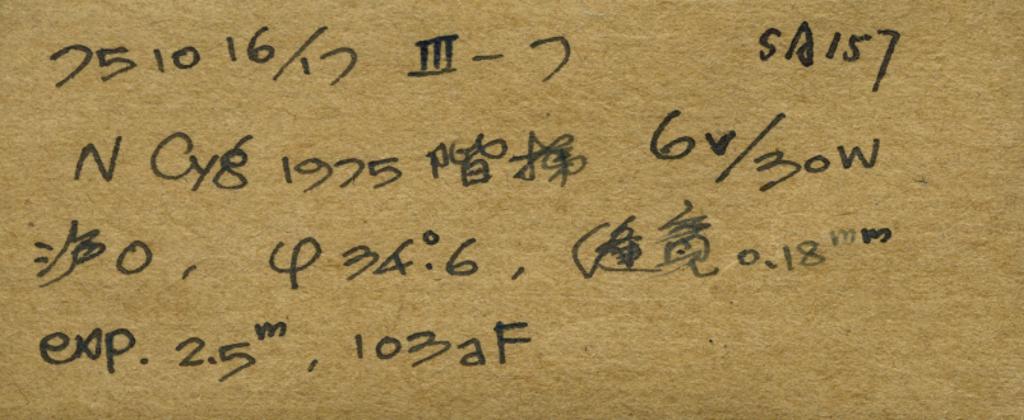 751016/17 III-7 SA157
N Cyg 1975 階操 6v/30W
滤0, φ 34°.6, (缝宽 0.18mm
exp. 2.5m, 103aF